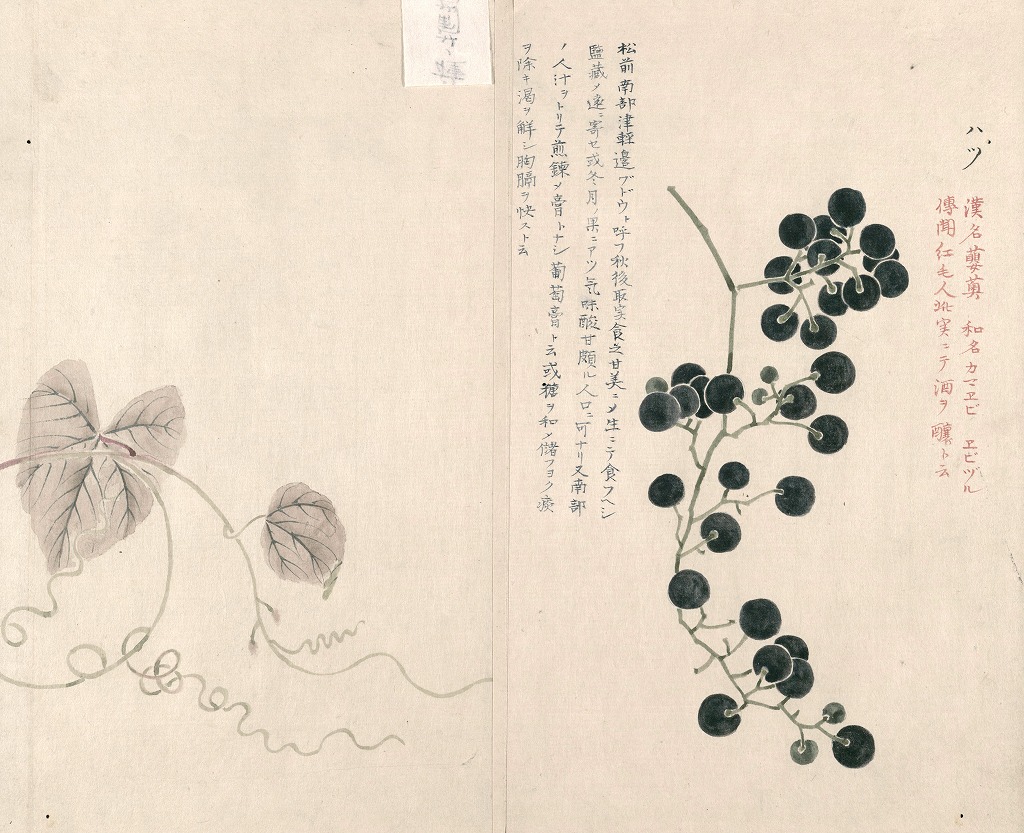 ハツ
漢名蘡薁 和名カマヱビ ヱビヅル
傳聞紅毛人此実ニテ酒ヲ釀ト云
松前南部津輕邉ブドウト呼フ秋後取実食之甘美ニメ生ニテ食フヘシ
鹽藏メ遠ニ寄セ或冬月ノ果ニアツ気味酸甘頗ル人口ニ可ナリ又南部
ノ人汁ヲトリテ煎鍊メ膏トナシ葡萄膏ト云或糖ヲ和メ儲フヨク痰
ヲ除キ渇ヲ解シ胸膈ヲ快スト云